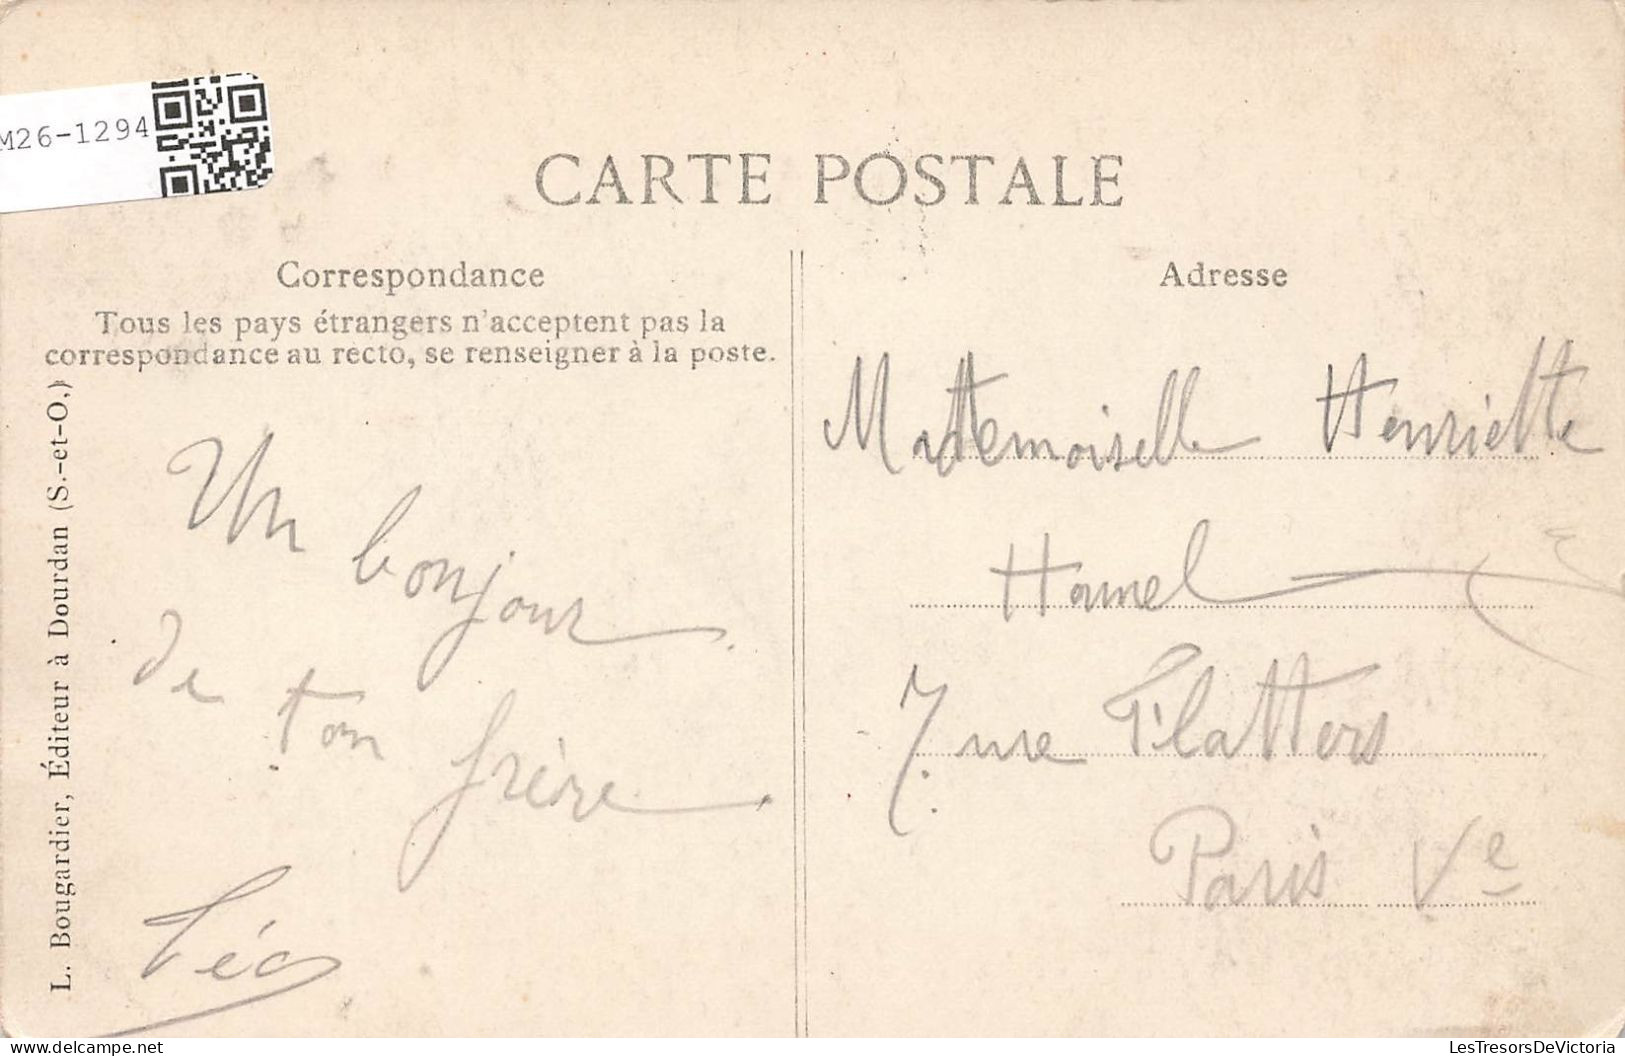 M26-1294
CARTE POSTALE
Correspondance
Tous les pays étrangers n'acceptent pas la
correspondance au recto, se renseigner à la poste.
L. Bougardier, Éditeur à Dourdan (S.-et-O,)
Un bonjour.
de ton frère.
Léo
Adresse
Mademoiselle Henriette
Hamel
7. rue Flatters
Paris Ve
LesTresorsDeVictoria
delcampe.net